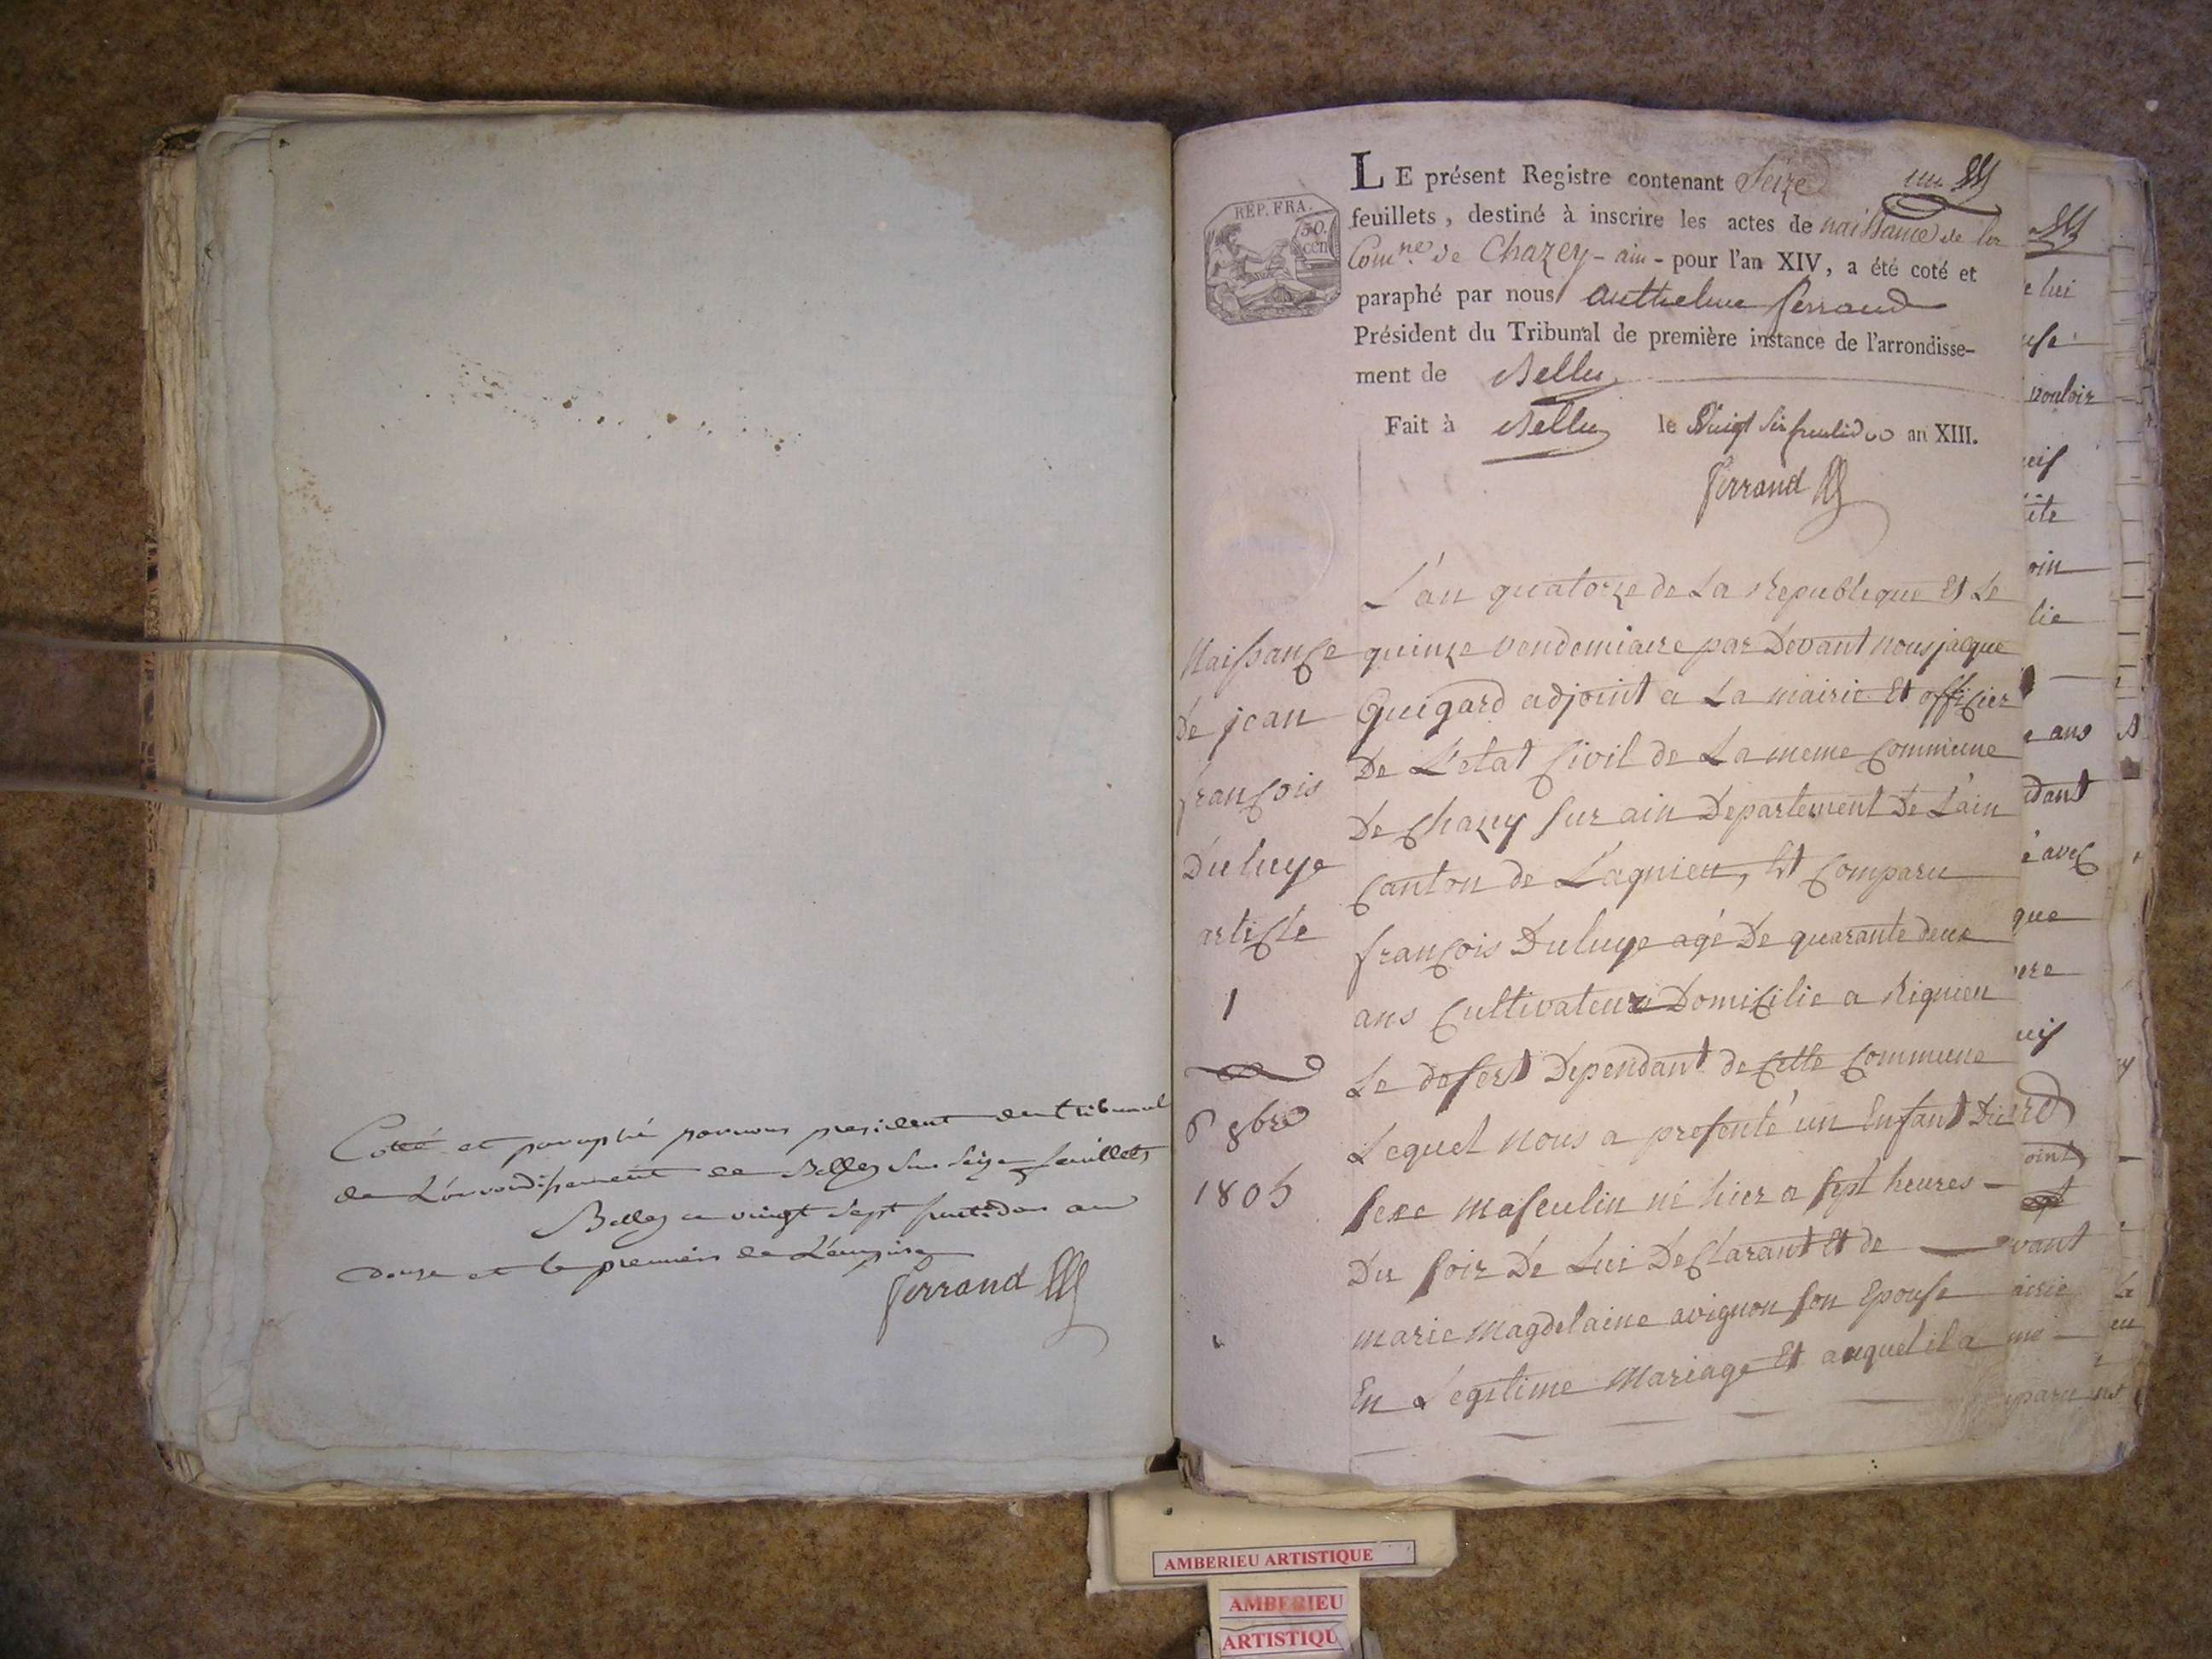 Cotté et paraphé par nous president du tribunal
de L'arrondissement de Belley sur seize feuillets
Belley ce vingt sept fructidor an
douze et le premier de L'empire
Ferrand
LE présent Registre contenant Seize
feuillets, destiné à inscrire les actes de naissance de la
Comne de Chazey-ain- pour l'an XIV, a été coté et
paraphé par nous Anthelme ferrand
Président du Tribunal de première instance de l'arrondisse-
ment de Belley
Fait à Belley le Vingt Six fructidor an XIII.
Ferrand
REP. FRA.
50.
cen
L'an quatorze de La Republique Et Le
quinze vendemiaire par Devant nous jacque
Guigard adjoint a La mairie Et officier
De L'etat Civil de La meme Commune
De Chazey Sur ain Departement De L'ain
Canton de Lagnieu, Est Comparu
françois Duluye agé De quarante deux
ans Cultivateur Domicilié a Rignieu
Le desert Dependant de Cette Commune
Lequel nous a presenté un Enfant Du
sexe masculin né hier a sept heures
Du soir De Lui Declarant Et de
marie magdelaine avignon son Epouse
En Legitime Mariage Et auquel il a
Naissance
De jean
françois
Duluye
article
1
6 8bre
1805
e lui
vouloir
oin
lie
e ans
dant
avec
que
ere
oint
vant
airie
La
AMBERIEU ARTISTIQUE
AMBERIEU
ARTISTIQU